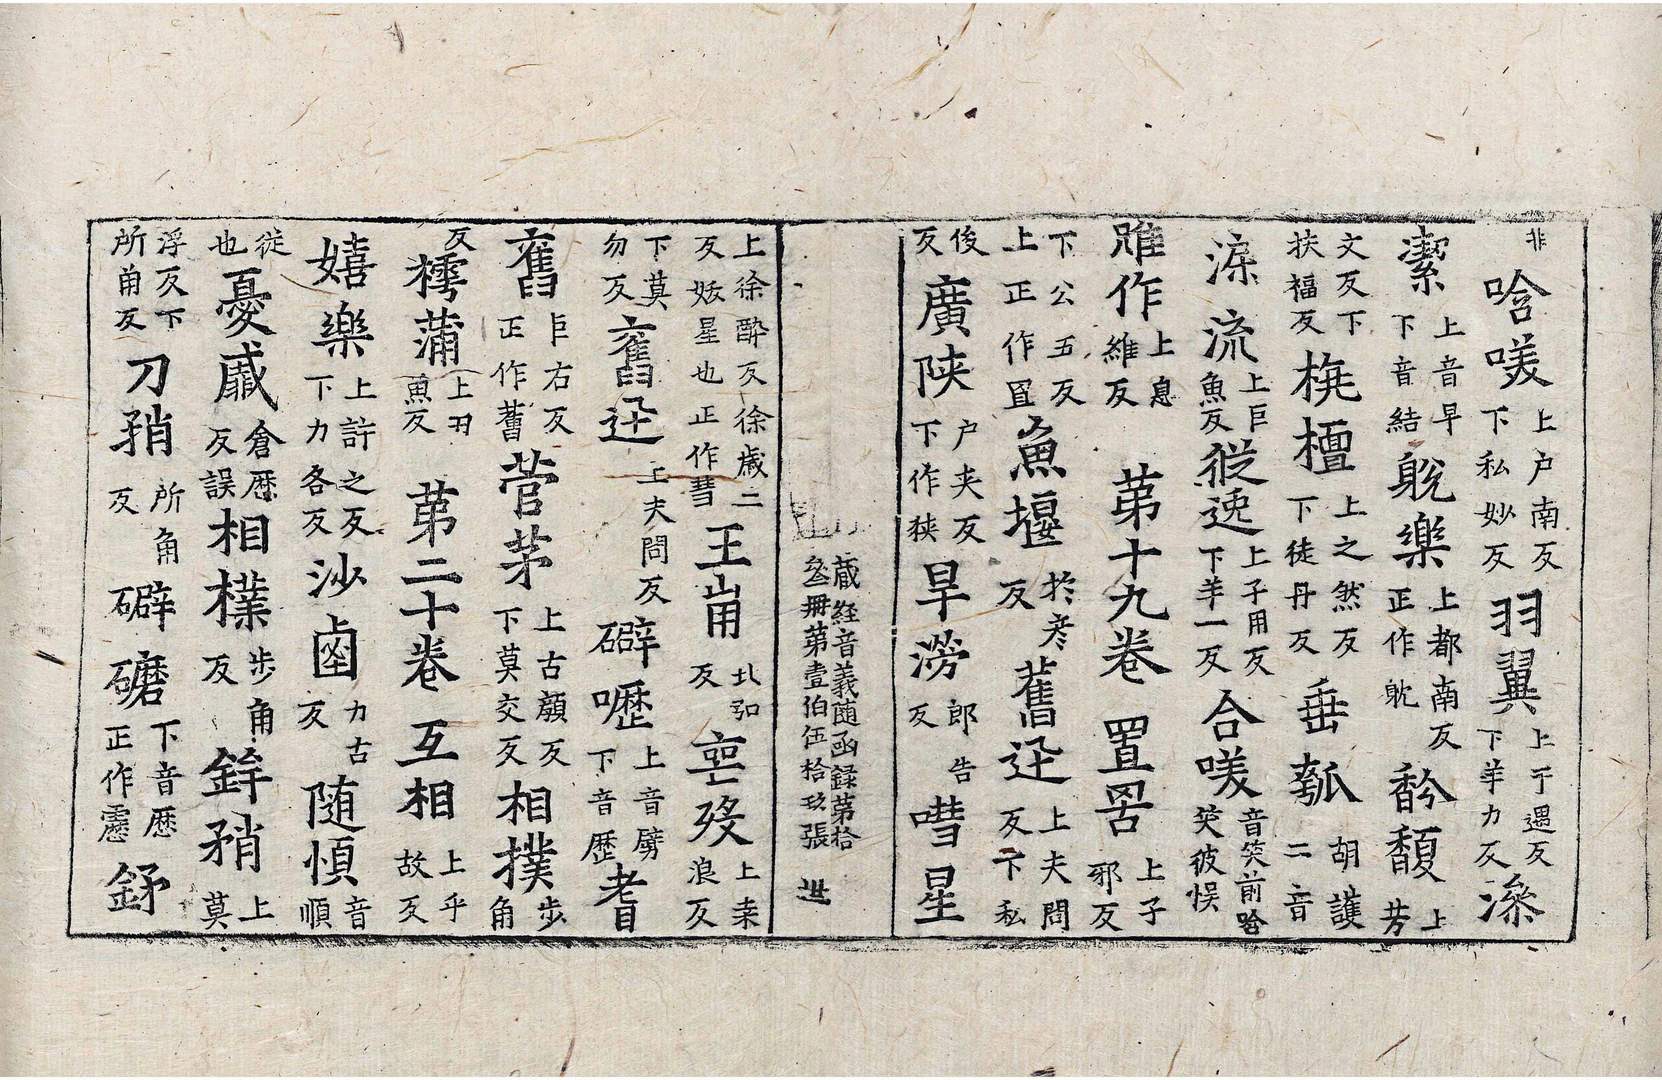 非 唅唉 上户南反下私妙反 羽翼 上于遇反下羊力反 㴽
潔 上音早下音結 躭樂 上都南反正作躭 馚馥 上芳
文反下扶福反 栴檀 上之然反下徒丹反 垂瓠 胡護二音
涼流 上巨魚反 縱逸 上子用反下羊一反 合唉 音笑前唅㗛彼悮
雖作 上息維反 苐十九卷 罝罟 上子邪反
下公五反上正作罝 魚堰 於彦反 舊迊 上夫問反下私
後反 廣陕 户夹反下作狭 旱澇 郎告反 嘒星
藏経音義随函録第拾叁冊第壹伯伍拾玖張
上徐醉反徐歲二反妖星也正作彗 王𡶴 北弘反 䘮殁 上桒浪反
下莫勿反 舊迊 上夫問反 礔𡃤 上音劈下音歷 耆
舊 巨右反正作舊 菅茅 上古顔反下莫交反 相撲 步角
反 樗蒲 上丑魚反 苐二十卷 互相 上乎故反
嬉樂 上許之反下力各反 沙鹵 力古反 随慎 音順
從也 憂慼 倉歷反誤 相檏 步角反 鉾矟 上莫
浮反下所角反 刀矟 所角反 礔礳 下音歷正作靂 釾